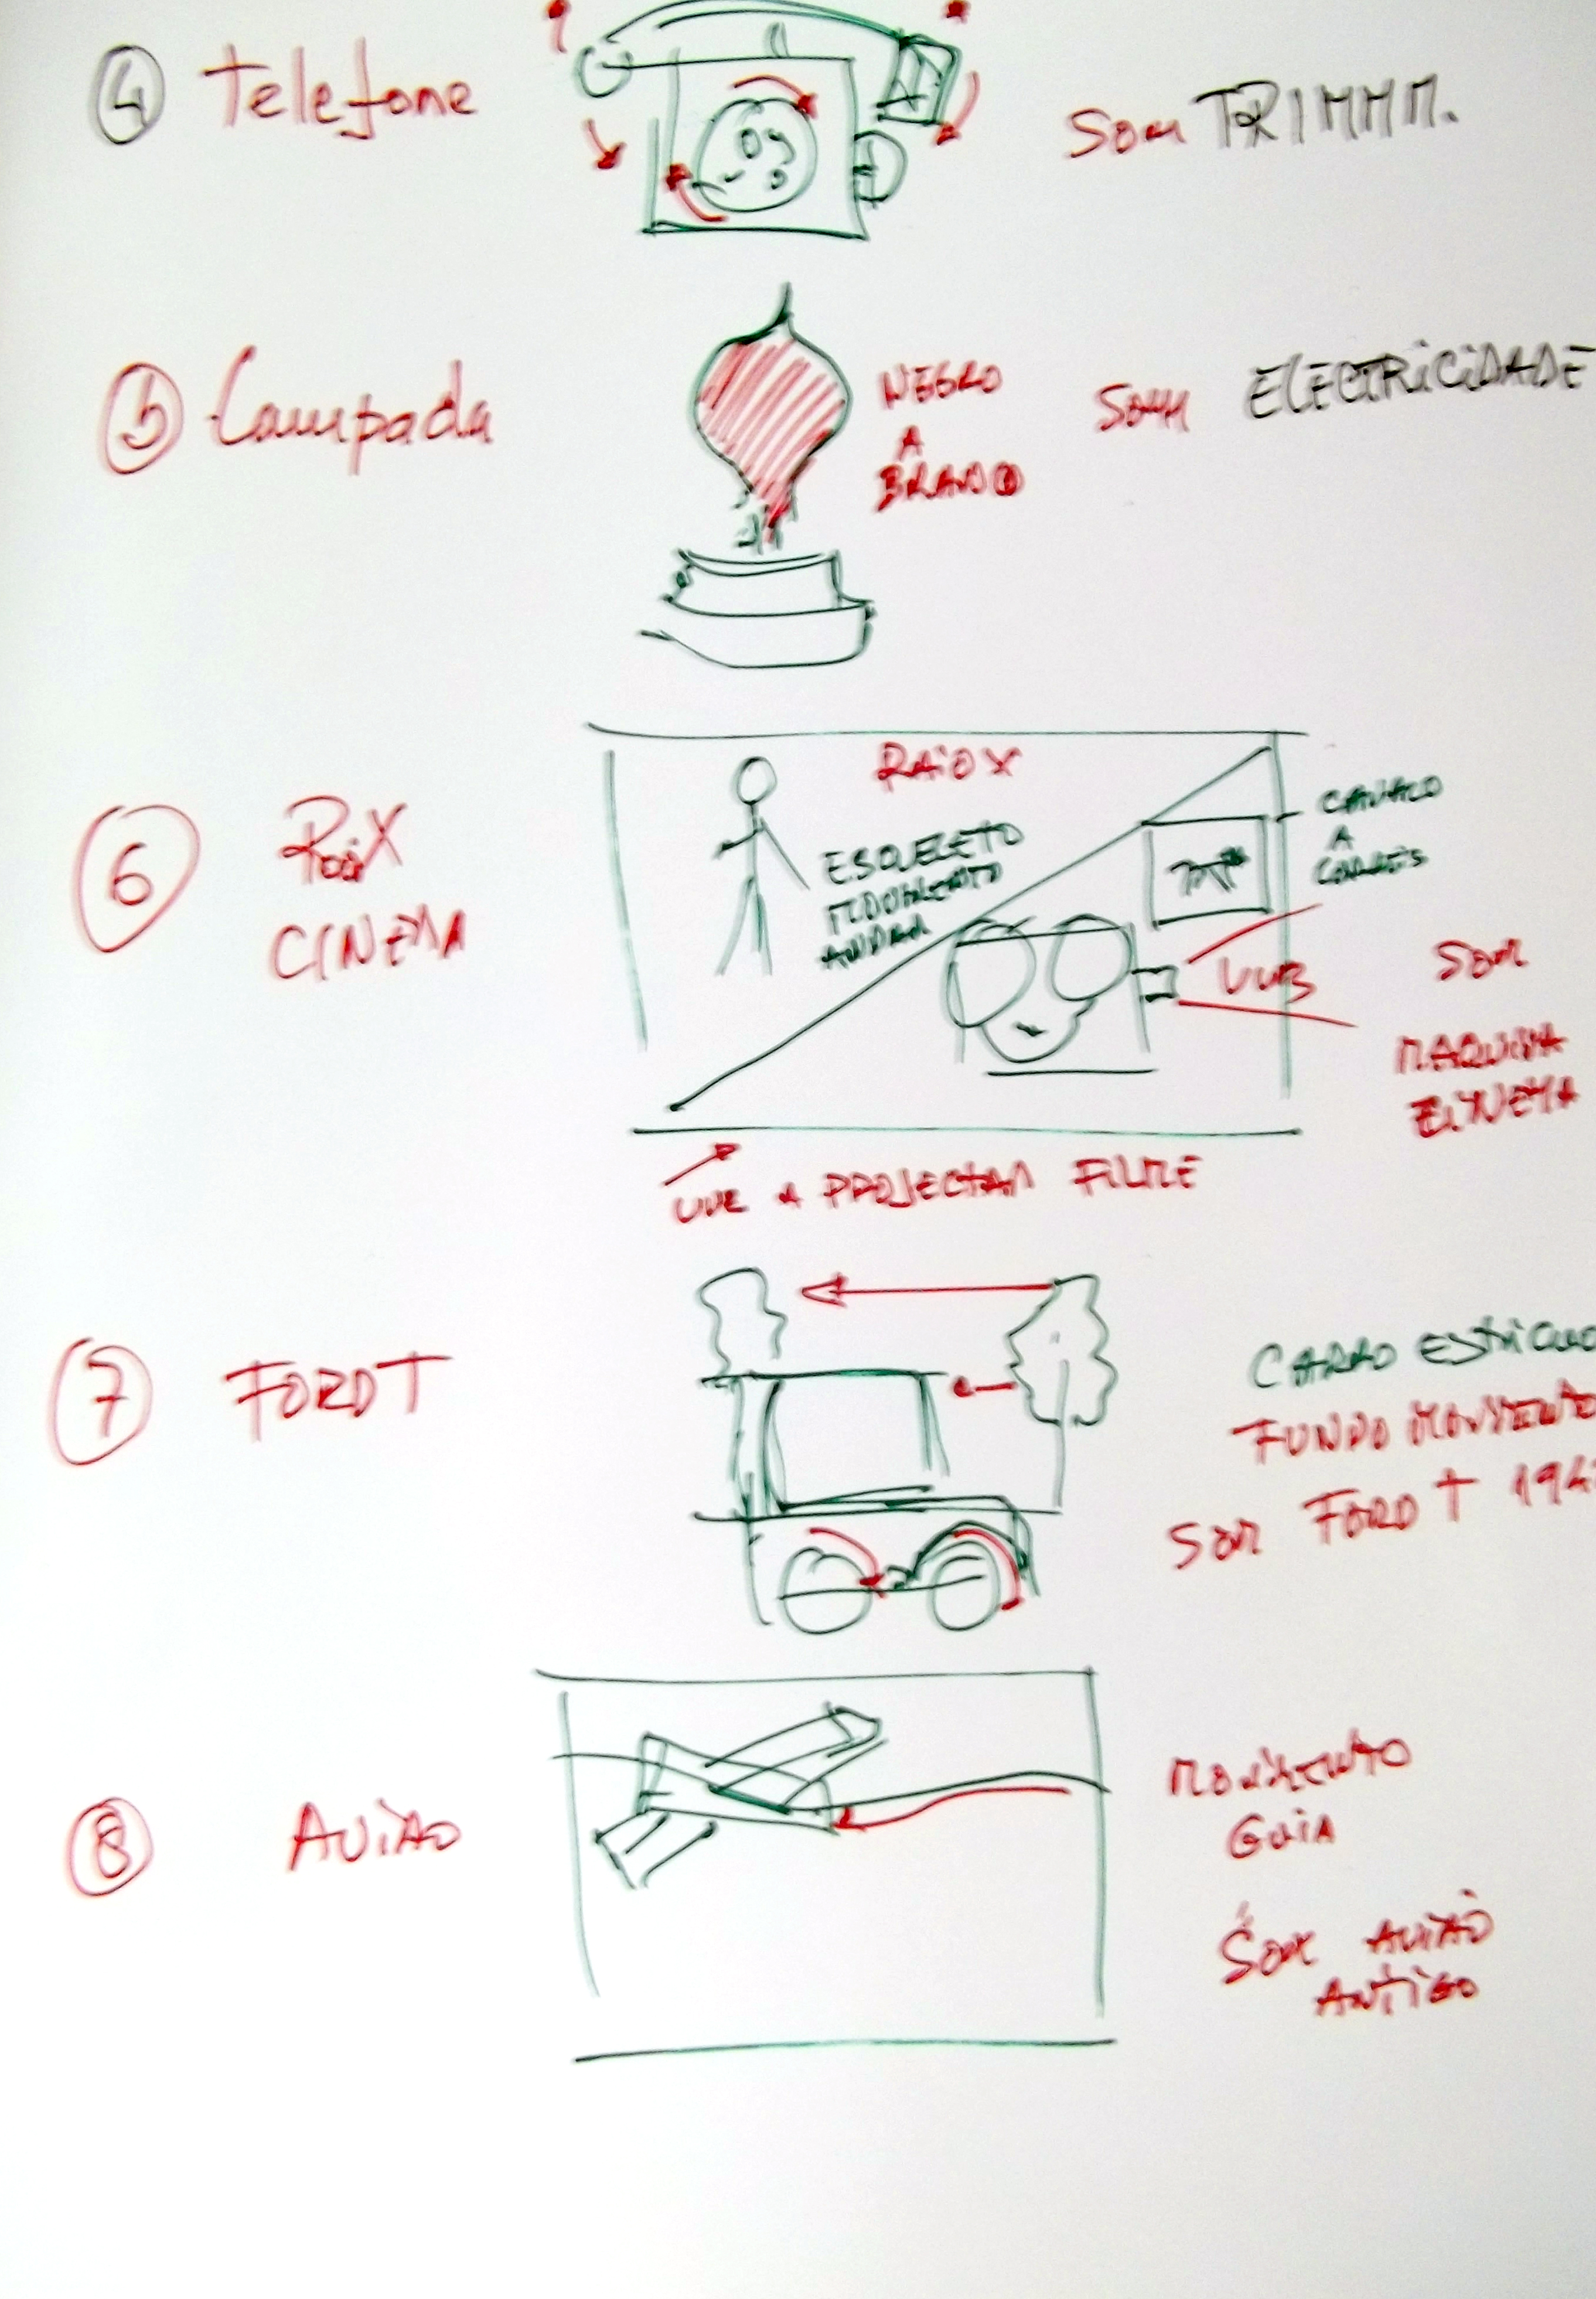 4 Telefone
Som TRIMMM.
5 Lampada
NEGRO
A
BRANCO
Som ELECTRICIDADE
6 RaioX
CINEMA
RAIO X
ESQUELETO
MOVIMENTO
ANDAR
CAVALO
A
LUZ
SOM
MAQUINA
CINEMA
LUZ A PROJECTAR FILME
7 FORD T
CARRO
FUNDO MOVIMENTO
SOM FORD T
8 AVIÃO
MOVIMENTO
GUIA
SOM AVIÃO
ANTIGO